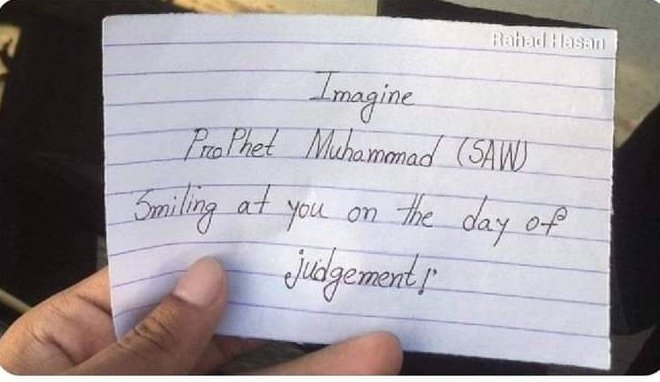 Rahad Hasan
Imagine
ProPhet Muhammad (SAW)
Smiling at you on the day of
judgement!